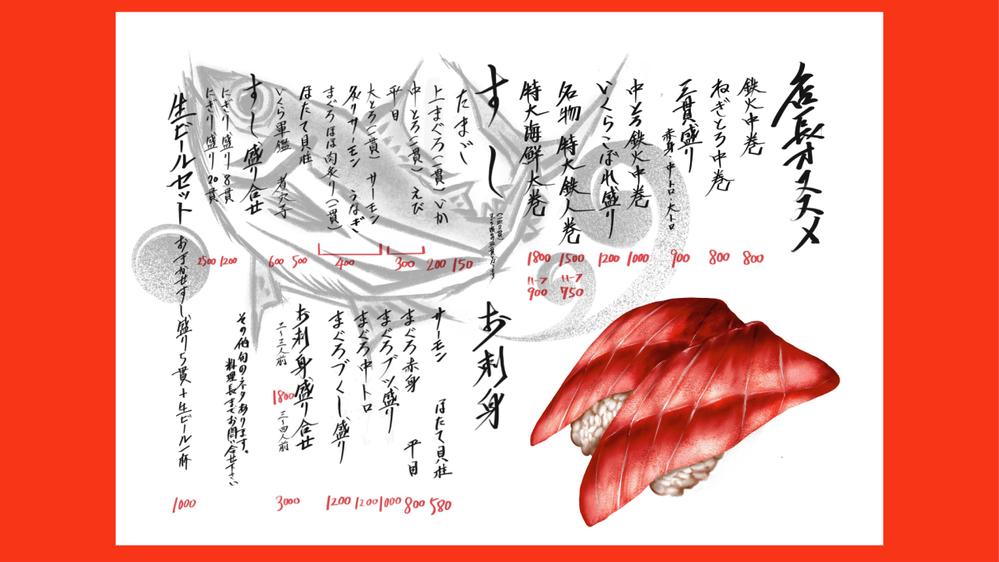 店長オススメ
鉄火中巻 800
ねぎとろ中巻 800
三貫盛り 900
赤身・中トロ・大トロ
中とろ鉄火中巻 1000
いくらこぼれ盛り 1200
名物 特大鉄人巻 1500
ハーフ 750
特大海鮮太巻 1800
ハーフ 900
すし
たまご 150
上まぐろ(一貫) いか 200
中とろ(一貫) えび 300
平目
大とろ(一貫) サーモン 400
炙りサーモン うなぎ
まぐろほほ肉炙り(一貫)
ほたて貝柱 500
いくら軍艦 煮穴子 600
すし盛り合せ
にぎり盛り 8貫 1200
にぎり盛り 20貫
お刺身
サーモン ほたて貝柱 580
まぐろ赤身 平目 800
まぐろブツ盛り 1000
まぐろ中トロ 1200
まぐろづくし盛り 1200
お刺身盛り合せ
二〜三人前 1800
三〜四人前 3000
その他旬のネタあります。
料理長までお問い合せ下さい
生ビールセット
おまかせすし盛り5貫+生ビール一杯 1000